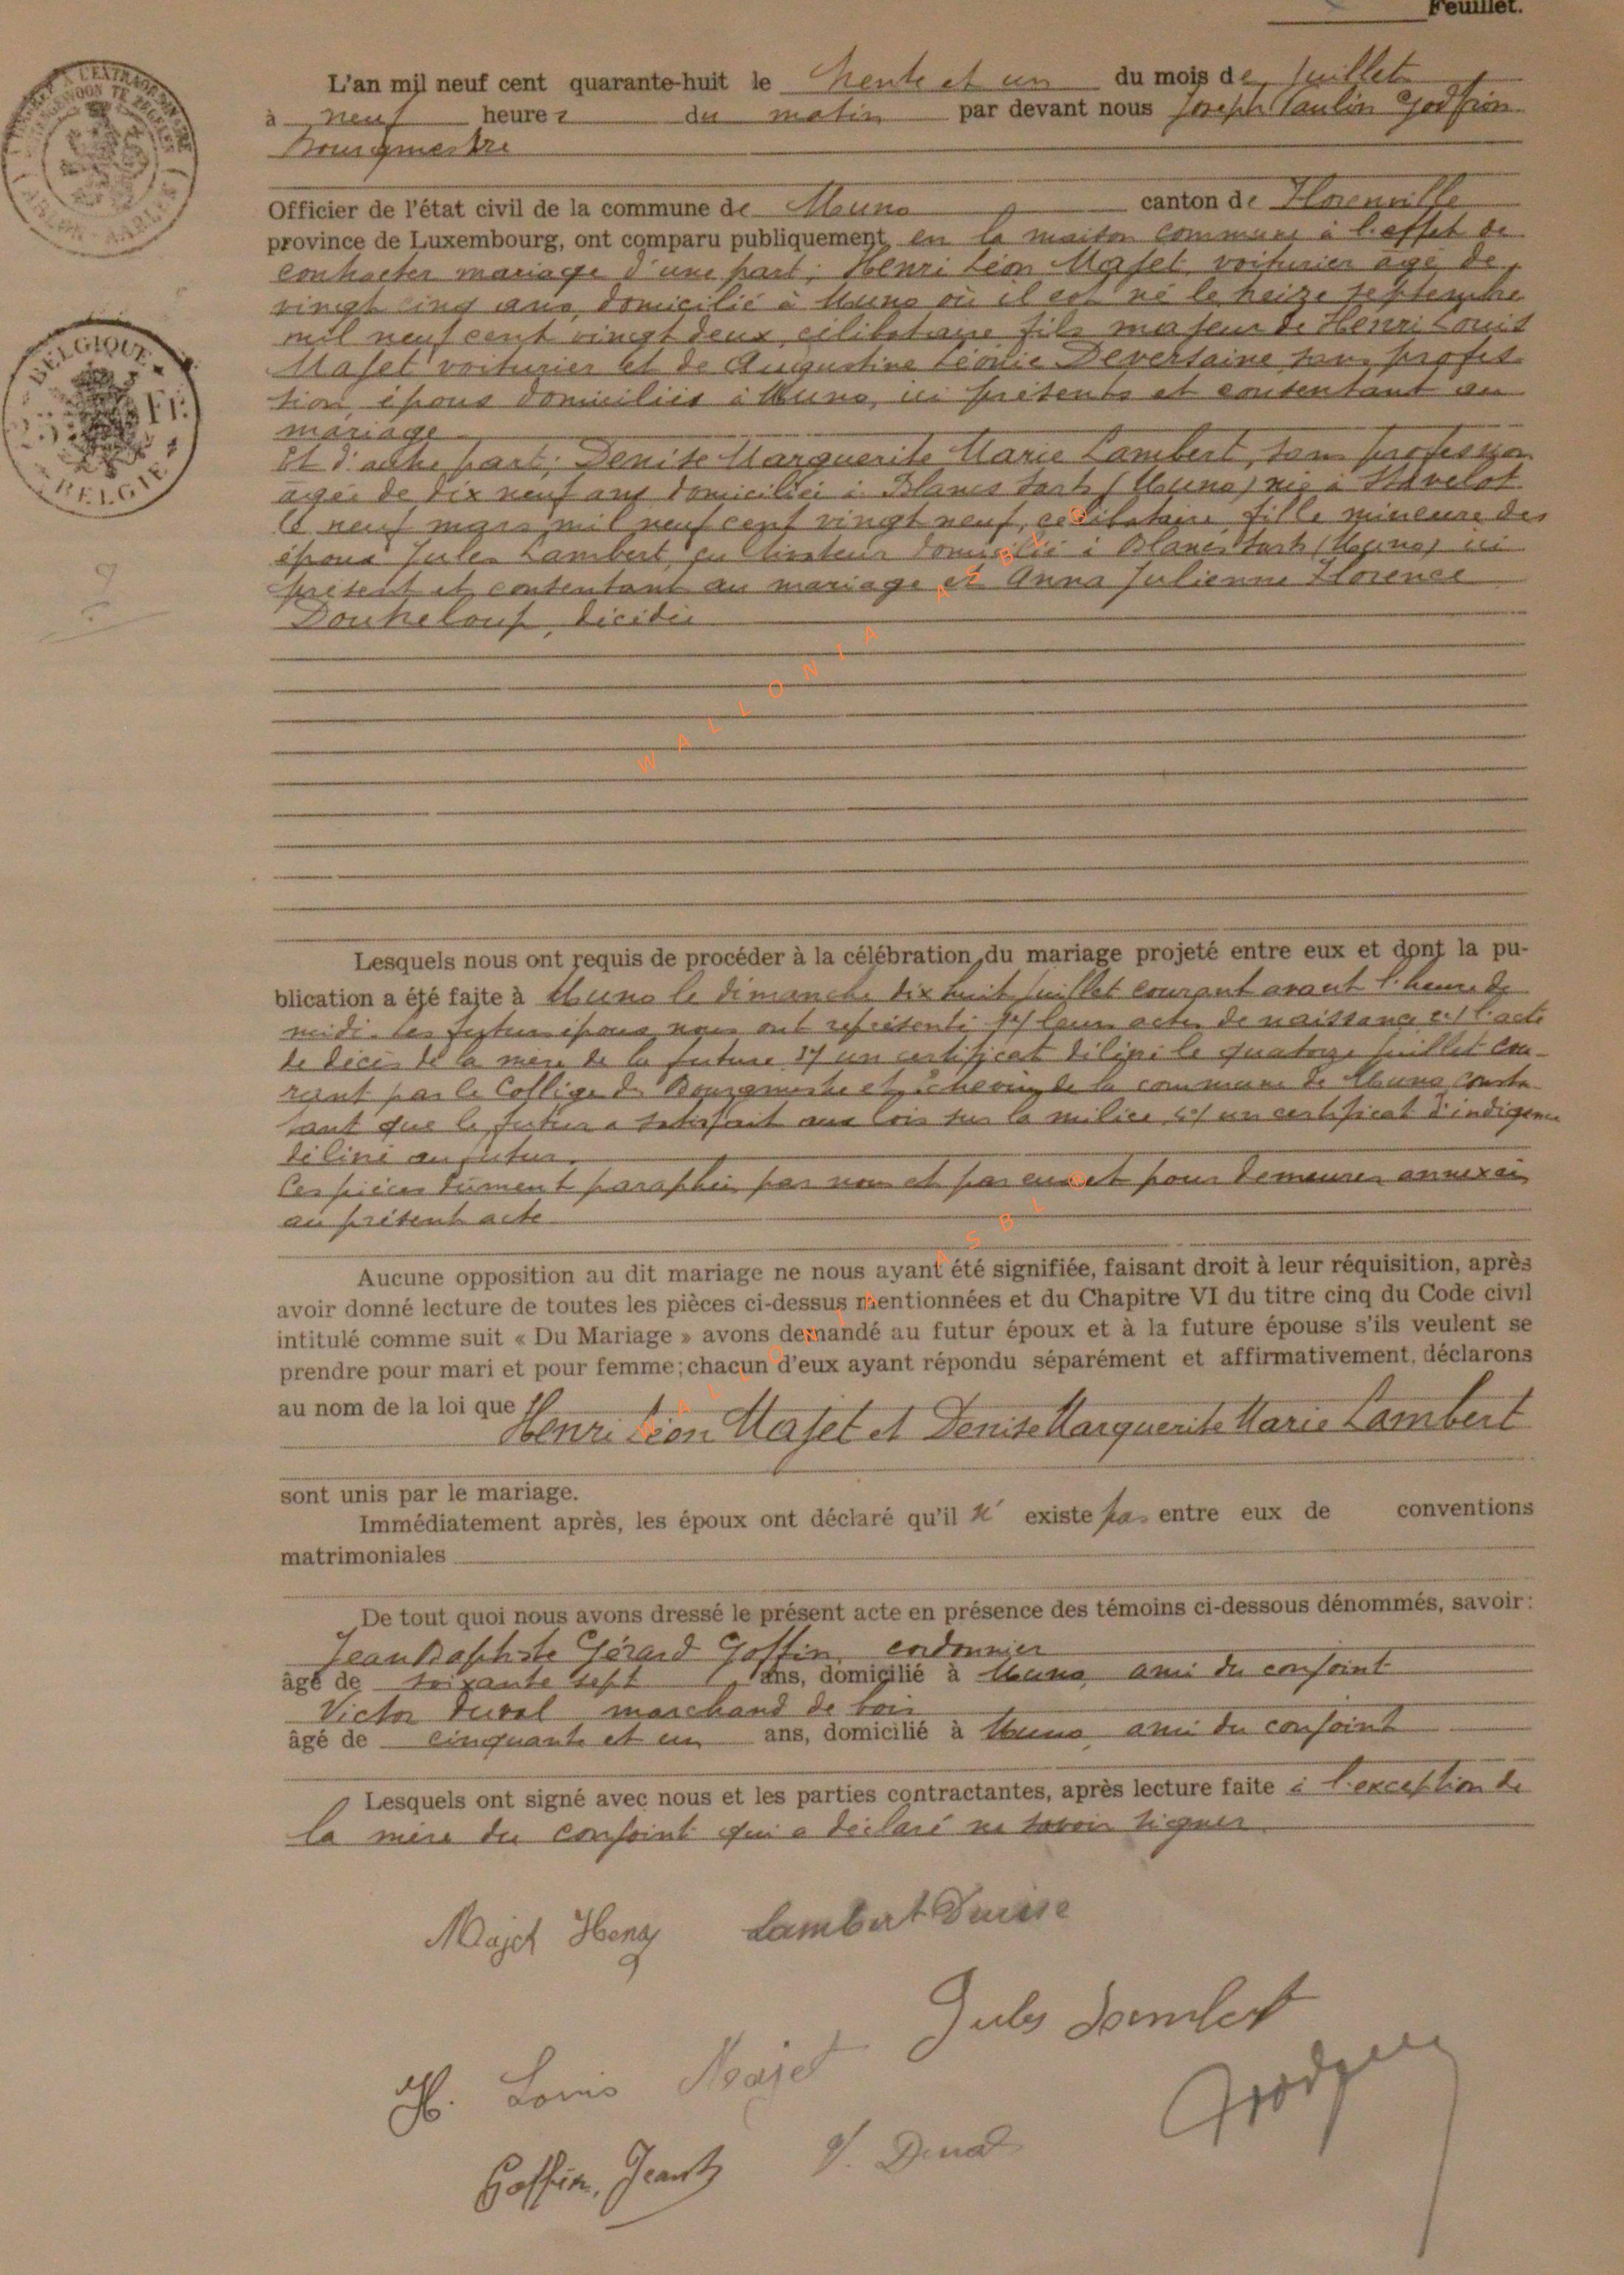 Feuillet.
L'an mil neuf cent quarante-huit le trente et un du mois de juillet
à neuf heures du matin par devant nous Joseph Paulin Godfrin
Bourgmestre
Officier de l'état civil de la commune de Muno canton de Florenville
province de Luxembourg, ont comparu publiquement en la maison commune à l'effet de
contracter mariage d'une part; Henri Léon Majet voiturier agé de
vingt cinq ans domicilié à Muno où il est né le treize septembre
mil neuf cent vingt deux, célibataire fils majeur de Henri Louis
Majet voiturier et de Augustine Léonie Deversaine sans profes
sion, époux domiciliés à Muno, ici présents et consentant au
mariage
Et d'autre part; Denise Marguerite Marie Lambert, sans profession
agée de dix neuf ans domiciliée à (Muno) née à Stavelot
le neuf mars mil neuf cent vingt neuf, célibataire fille mineure des
époux Jules Lambert, cultivateur domicilié à (Muno) ici
présent et consentant au mariage et Anna Julienne Florence
décédée
Lesquels nous ont requis de procéder à la célébration du mariage projeté entre eux et dont la pu-
blication a été faite à Muno le dimanche dix huit juillet courant avant l'heure de
midi. Les futurs époux nous ont représenté 1°/ leurs actes de naissance 2°/ l'acte
de décès de la mère de la future 3°/ un certificat délivré le quatorze juillet cou-
rant par le Collège de Bourgmestre et échevins de la commune de Muno consta
tant que le futur a satisfait aux lois sur la milice, 4°/ un certificat d'indigence
délivré au futur.
Ces pièces dûment paraphées par nous et par eux et pour demeurer annexées
au présent acte
Aucune opposition au dit mariage ne nous ayant été signifiée, faisant droit à leur réquisition, après
avoir donné lecture de toutes les pièces ci-dessus mentionnées et du Chapitre VI du titre cinq du Code civil
intitulé comme suit « Du Mariage » avons demandé au futur époux et à la future épouse s'ils veulent se
prendre pour mari et pour femme; chacun d'eux ayant répondu séparément et affirmativement, déclarons
au nom de la loi que
Henri Léon Majet et Denise Marguerite Marie Lambert
sont unis par le mariage.
Immédiatement après, les époux ont déclaré qu'il n' existe pas entre eux de conventions
matrimoniales
De tout quoi nous avons dressé le présent acte en présence des témoins ci-dessous dénommés, savoir:
Jean Baptiste Gérard Goffin, cordonnier
âgé de soixante sept ans, domicilié à Muno, ami du conjoint
Victor Duval marchand de bois
âgé de cinquante et un ans, domicilié à Muno, ami du conjoint
Lesquels ont signé avec nous et les parties contractantes, après lecture faite à l'exception de
la mère du conjoint qui a déclaré ne savoir signer
Majet Henry Lambert Denise
Jules Lambert
H. Louis Majet
Goffin, Jean V. Duval
BELGIQUE
BELGIE
WALLONIA ASBL